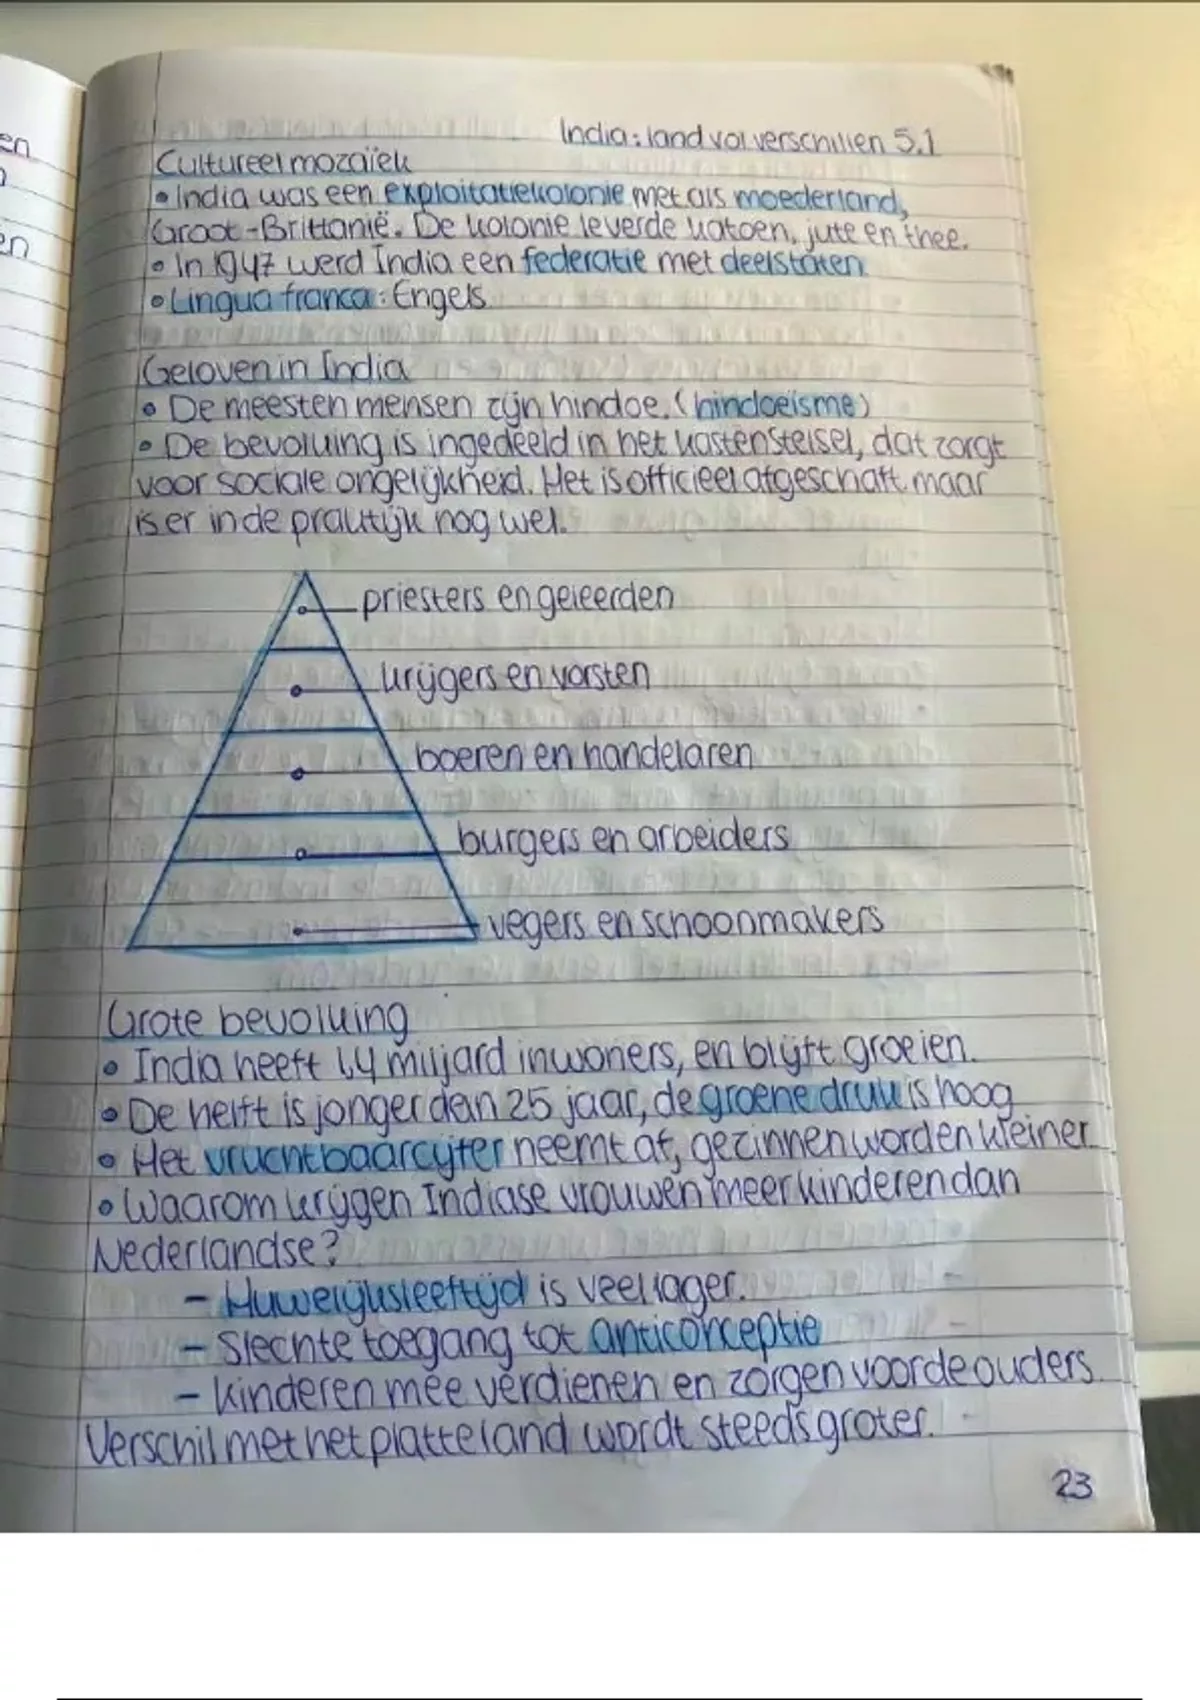 India: land vol verschillen 5.1
Cultureel mozaïek
• India was een exploitatiekolonie met als moederland,
Groot-Brittanië. De kolonie leverde katoen, jute en thee.
• In 1947 werd India een federatie met deelstaten.
• Lingua franca: Engels
Geloven in India
• De meesten mensen zijn hindoe. (hindoeïsme)
• De bevolking is ingedeeld in het kastenstelsel, dat zorgt
voor sociale ongelijkheid. Het is officieel afgeschaft maar
is er in de praktijk nog wel.
priesters en geleerden
krijgers en vorsten
boeren en handelaren
burgers en arbeiders
vegers en schoonmakers
Grote bevolking
• India heeft 1,4 miljard inwoners, en blijft groeien.
• De helft is jonger dan 25 jaar, de groene druk is hoog
• Het vruchtbaarcijfer neemt af, gezinnen worden kleiner.
• Waarom krijgen Indiase vrouwen meer kinderen dan
Nederlandse?
- Huwelijksleeftijd is veel lager.
- Slechte toegang tot anticonceptie
- kinderen mee verdienen en zorgen voor de ouders.
Verschil met het platteland wordt steeds groter.
23
en
en